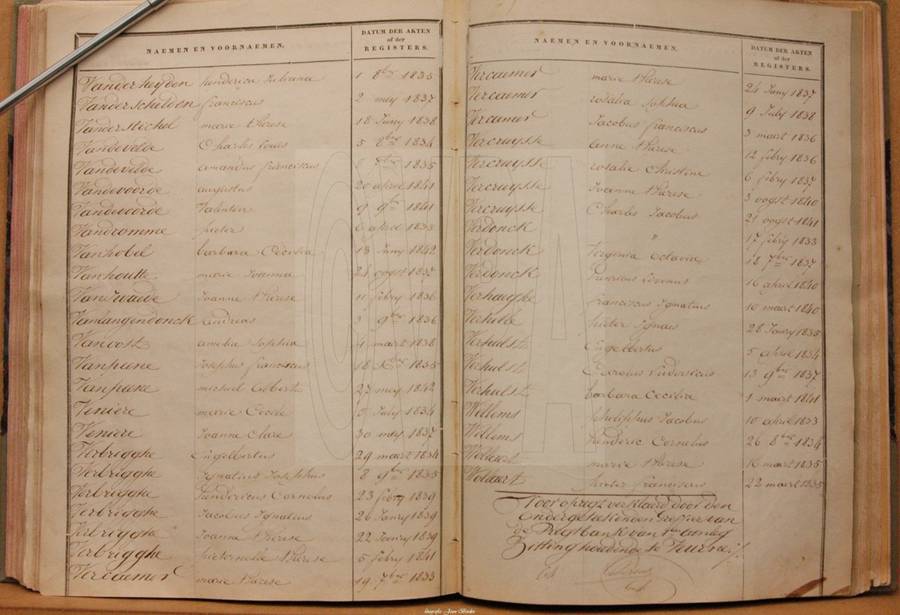 NAEMEN EN VOORNAEMEN.
DATUM DER AKTEN
of der
REGISTERS.
Vanderheyden henderica Juliana 1 8bre 1835
Vanderschelden franciscus 2 mey 1837
Vanderstichel marie therese 18 Juny 1838
Vandevelde Charles louis 5 8bre 1834
Vandevelde amandus franciscus 1835
Vandevoorde augustus 20 april 1841
Vandevoorde Valentin 9 9bre 1841
Vandromme pieter 6 april 1833
Vanhobel barbara Cecilia 13 Juny 1842
Vanhoutte marie Joanna 24 oogst 1837
Joanne therese 11 febry 1836
Vanlangendonck andreas 3 9bre 1836
Vanoost amelia Sophia 4 maart 1838
Vanpeene Josephus franciscus 18 1835
Vanpeene michiel albert 27 mey 1842
Veniere marie Cecile July 1834
Veniere Joanne Clare 30 mey 1837
Verbrigghe Engelbertus 29 maart 1834
Verbrigghe Ignatius Josephus 8 9bre 1835
Verbrigghe hendericus Cornelius 23 febry 1839
Verbrigghe Jacobus Ignatius 26 Janry 1839
Verbrigghe Joanna therese 22 Janry 1839
Verbrigghe pieternelle therese 5 febry 1841
Vercaemer marie therese 19 7bre 1833
NAEMEN EN VOORNAEMEN.
DATUM DER AKTEN
of der
REGISTERS.
Vercaemer marie therese 24 Juny 1837
Vercaemer rosalia Sophia 9 July 1838
Vercaemer Jacobus franciscus 3 maart 1836
Vercruysse anne therese 12 febry 1836
Vercruysse rosalie Christine 6 febry 1837
Vercruysse Joanne therese 3 oogst 1840
Vercruysse Charles Jacobus 21 oogst 1841
Verdonck " 17 febry 1833
Verdonck Virginia octavia 18 7bre 1837
Verdonck 16 april 1840
Verhaeghe franciscus Ignatius 10 maart 1840
pieter Ignaas 28 Janry 1835
Verhulst Engelbertus 5 april 1834
Verhulst Carolus Ludovicus 13 9bre 1837
Verhulst barbara Cecilia 1 maart 1841
Willems philiphus Jacobus 10 april 1833
Willems henderic Cornelius 26 8bre 1834
Wollaert marie therese 16 maart 1835
Wollaert pieter franciscus 22 maart 1835
Voor opregt verklaerd door den
Ondergeteekenden Greffier van
de Regtbank van 1en aenleg
Zitting houdende te Veurne